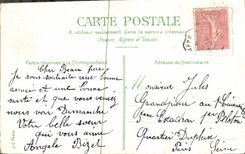 CARTE POSTALE
A utiliser seulement dans le service intérieur
(France, Algérie et Tunisie)
Partie réservée à la Correspondance
Adresse du Destinataire
Cher Beau frère
Je vous souhaite une bonne
année et une bonne
santé et que vous venez
nous voir Dimanche
Votre belle sœur
qui vous aime
Angèle Bizel
Monsieur Jules
Grandjean au
Escadron
Quartier Dupleix
Paris Seine